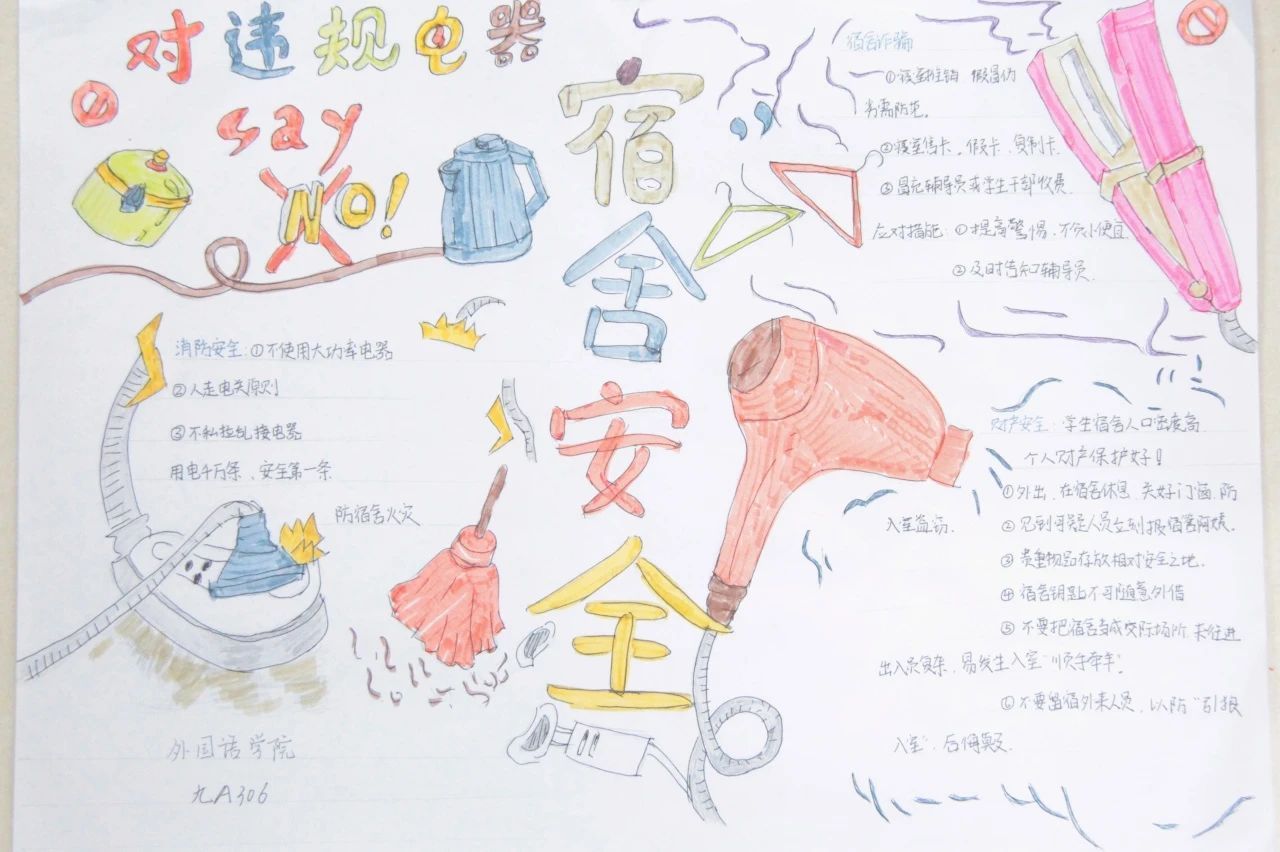 对违规电器
say
NO!
宿舍安全
消防安全：①不使用大功率电器
②人走电关原则
③不私拉乱接电器
用电千万条，安全第一条
防宿舍火灾
外国语学院
九A306
宿舍诈骗
①寝室推销 假冒伪
劣需防范。
②寝室售卡，假卡，复制卡
③冒充辅导员或学生干部收费
应对措施：①提高警惕，不贪小便宜
②及时告知辅导员
财产安全：学生宿舍人口密度高
个人财产保护好！
①外出、在宿舍休息，关好门窗，防
入室盗窃.
②见到可疑人员立刻报宿管阿姨。
③贵重物品存放相对安全之地.
④宿舍钥匙不可随意外借
⑤不要把宿舍当成交际场所，来往进
出人员复杂，易发生入室“顺手牵羊”.
⑥不要留宿外来人员，以防“引狼
入室”，后悔莫及.